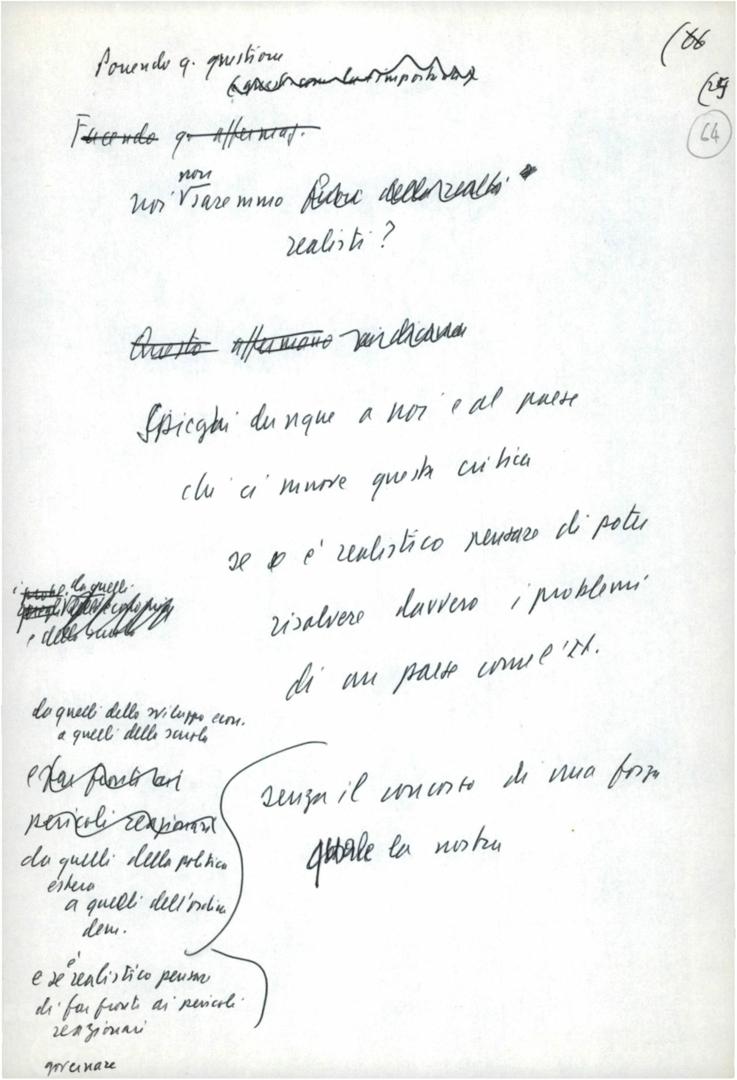 (66
(25
64
Ponendo q. questione
Facendo q. affermaz.
non
noi saremmo
realisti?
Questo affermano
Spieghi dunque a noi e al paese
chi ci muove questa critica
se è realistico pensare di poter
risolvere davvero i problemi
di un paese come l'It.
i probl. da quelli
e della scuola
da quelli dello sviluppo econ.
a quelli della scuola
e far fronte ai
pericoli reazionari
da quelli della politica
estera
a quelli dell'ordine
dem.
senza il concorso di una forza
quale la nostra
e se è realistico pensare
di far fronte ai pericoli
reazionari
governare